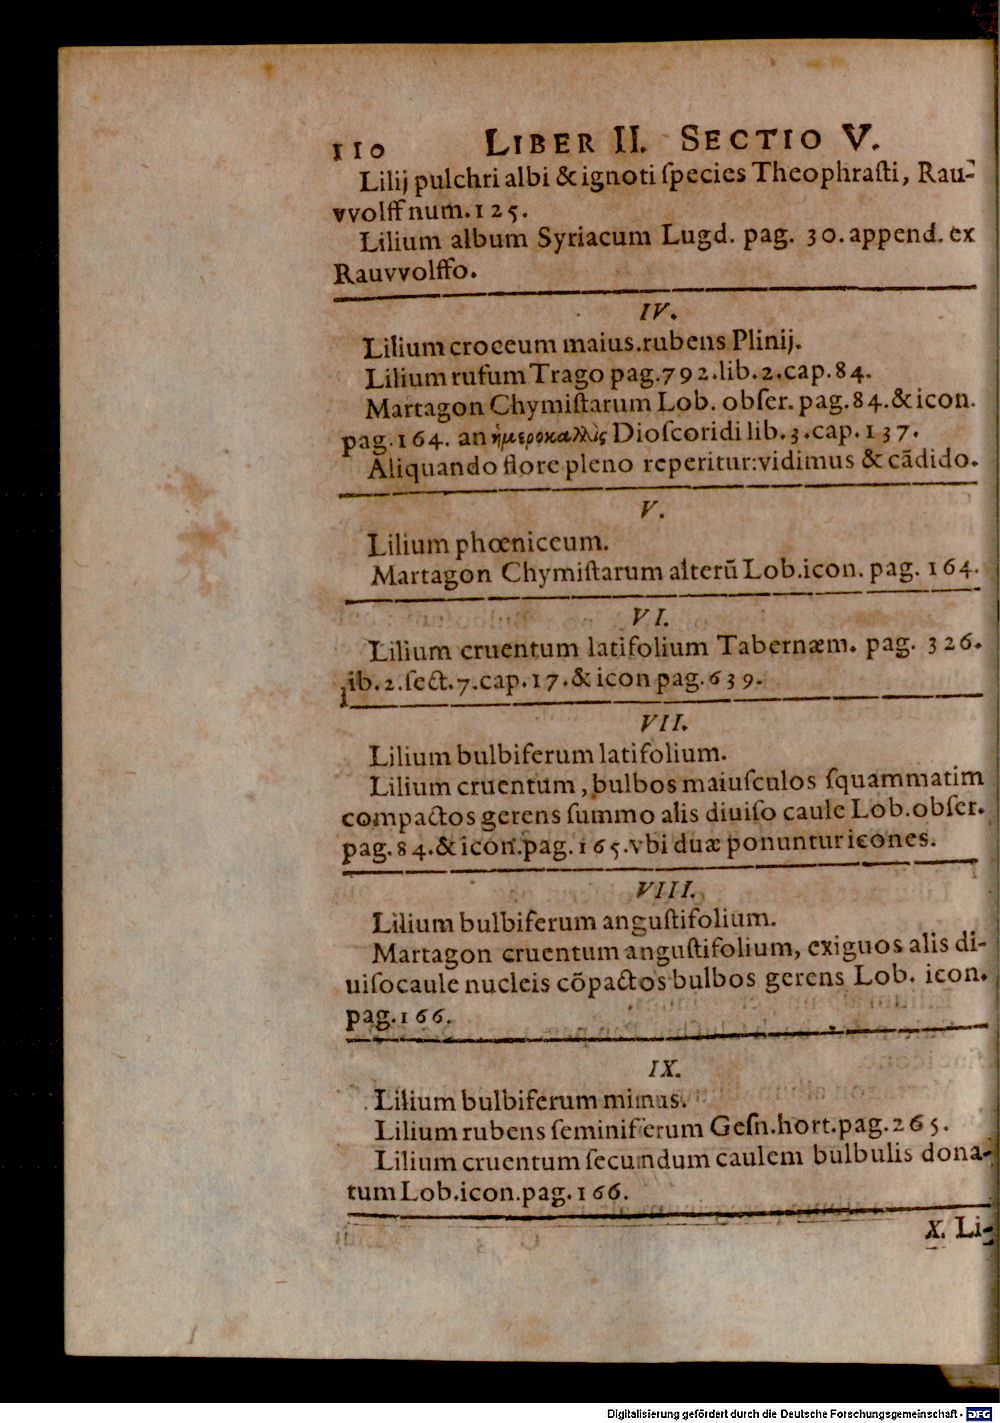 110 LIBER II. SECTIO V.
Lilij pulchri albi & ignoti ſpecies Theophraſti, Rau-
vvolff num. 125.
Lilium album Syriacum Lugd. pag. 30. append. ex
Rauvvolffo.
IV.
Lilium croceum maius. rubens Plinij.
Lilium rufum Trago pag. 792. lib. 2. cap. 84.
Martagon Chymiſtarum Lob. obſer. pag. 84. & icon.
pag. 164. an ἡμεροκαλλὶς Dioſcoridi lib. 3. cap. 137.
Aliquando flore pleno reperitur: vidimus & cãdido.
V.
Lilium phœniceum.
Martagon Chymiſtarum alterũ Lob. icon. pag. 164.
VI.
Lilium cruentum latifolium Tabernæm. pag. 326.
lib. 2. ſect. 7. cap. 17. & icon pag. 639.
VII.
Lilium bulbiferum latifolium.
Lilium cruentum, bulbos maiuſculos ſquammatim
compactos gerens ſummo alis diuiſo caule Lob. obſer.
pag. 84. & icon. pag. 165. vbi duæ ponuntur icones.
VIII.
Lilium bulbiferum anguſtifolium.
Martagon cruentum anguſtifolium, exiguos alis di-
uiſo caule nucleis cõpactos bulbos gerens Lob. icon.
pag. 166.
IX.
Lilium bulbiferum minus.
Lilium rubens ſeminiferum Geſn. hort. pag. 265.
Lilium cruentum ſecundum caulem bulbulis dona-
tum Lob. icon. pag. 166.
X. Li-
Digitalisierung gefördert durch die Deutsche Forschungsgemeinschaft - DFG